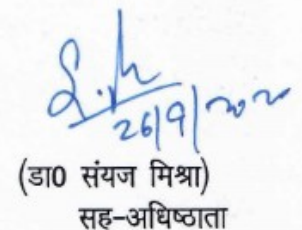 26/9/2020
(डा0 संयज मिश्रा)
सह-अधिष्ठाता